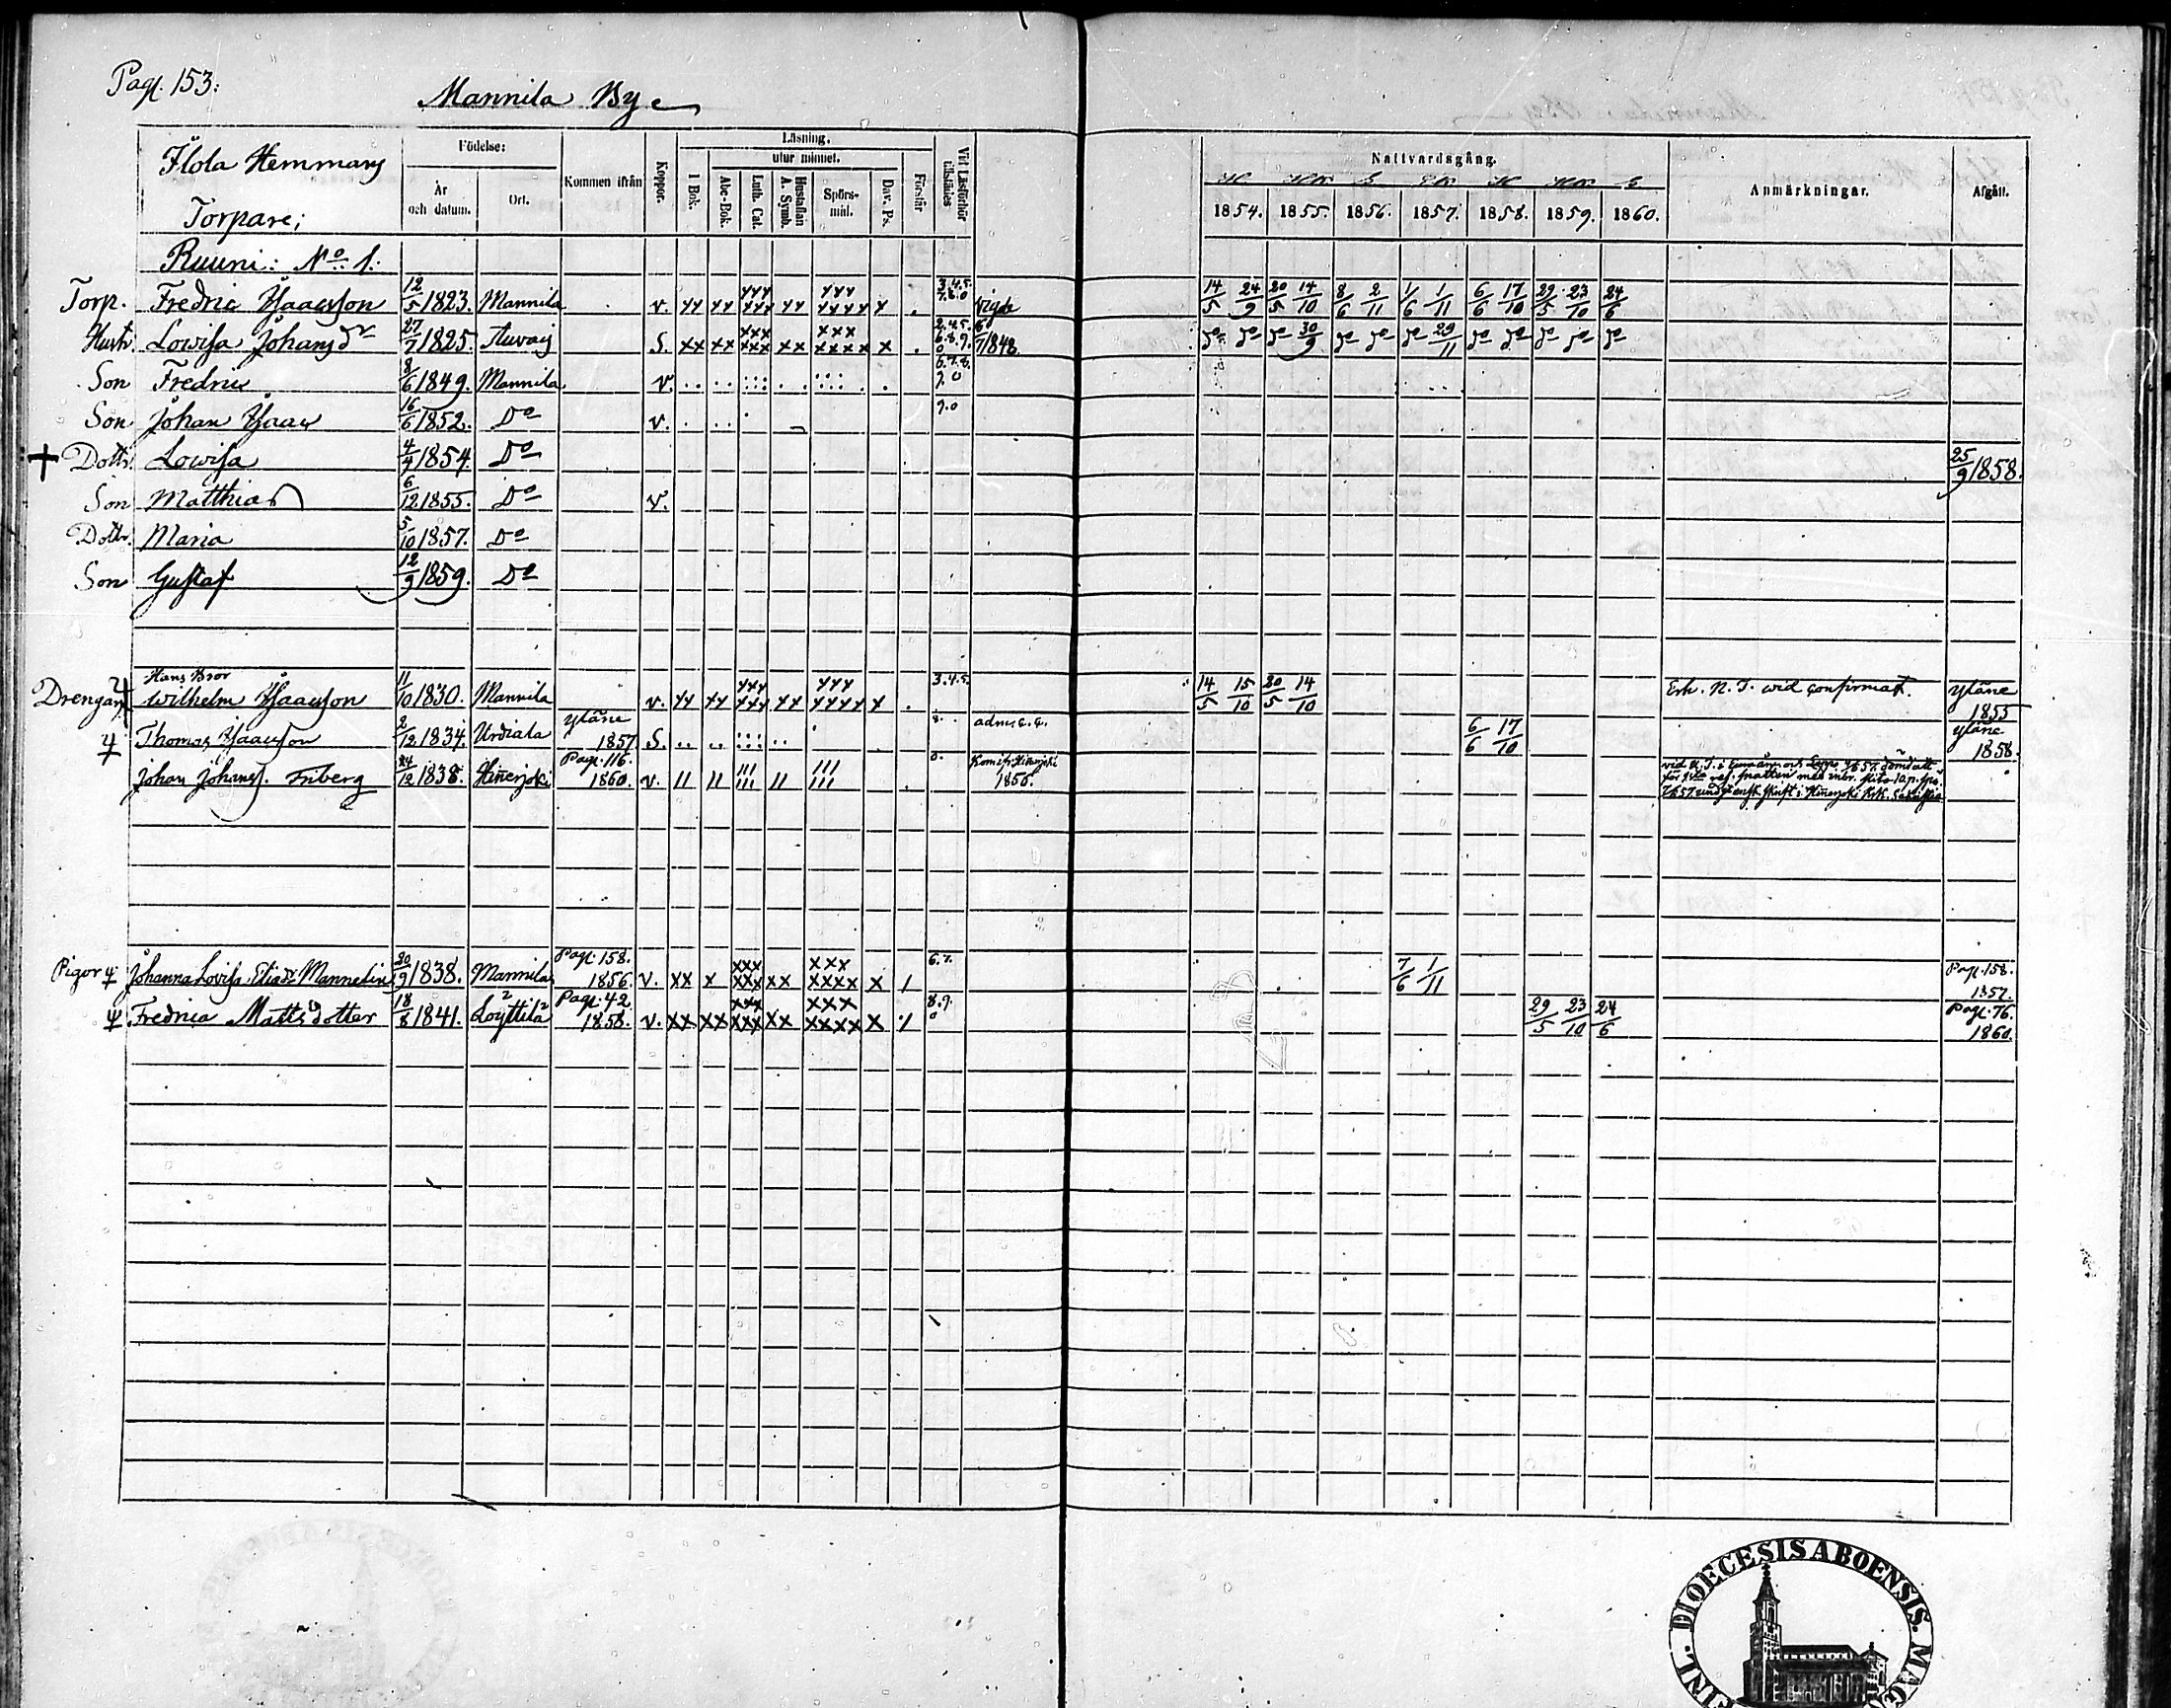 Pag. 153:
Mannila By
Ilola Hemmans
Torpare;
Födelse:
År och datum.
Ort.
Kommen ifrån
Koppor.
Läsning.
I Bok.
utur minnet.
Abc-Bok.
Luth. Cat.
Hustaflan A. Symb.
Spörs-mål.
Dav. Ps.
Förstår
Vid Läsförhör tillstädes
Nattvardsgång.
1854. 1855. 1856. 1857. 1858. 1859. 1860.
Anmärkningar.
Afgått.
Ruuni: No 1:
Torp. Fredric Isaacsson 12/5 1823. Mannila v. 3.4.5. 7.8.0 Vigde 14/5 24/9 20/5 14/10 8/6 2/11 1/6 1/11 6/6 17/10 29/5 23/10 24/6
Hustr. Lovisa Johansdr 27/7 1825. Auvais S. 2.4.5. 6.8.9. 6/7 1848 do do do 30/9 do do do 29/11 do do do do do
Son Fredric 8/6 1849. Mannila v. 6.7.8. 9.0
Son Johan Isaac 16/6 1852. Do v. 9.0
+ Dottr. Lovisa 4/4 1854. Do 25/9 1858.
Son Matthias 6/12 1855. Do v.
Dottr. Maria 5/10 1857. Do
Son Gustaf 12/9 1859. Do
Hans Bror
Drengar Wilhelm Isaacsson 11/10 1830. Mannila v. 3.4.5. 14/5 15/10 20/5 14/10 Erh. N. T. wid confirmat. Yläne 1855
Thomas Isaacsson 2/12 1834. Urdiala Yläne 1857 S. 8. adm. c. c. 6/6 17/10 Yläne 1858.
Johan Johanss. Friberg 24/12 1838. Hinerjoki Pag. 116. 1860. v. 0. Hinerjoki 1856.
Pigor Johanna Lovisa Eliasdr Mannelin 20/9 1838. Mannila Pag. 158. 1856 v. 6.7. 7/6 1/11 Pag. 158. 1857.
Fredrica Mattsdotter 18/8 1841. Löyttilä Pag. 42 1858. v. 8.9. 0 29/5 23/10 24/6 Pag. 76. 1860.
FINL. DIOECESIS ABOENSIS. MAG